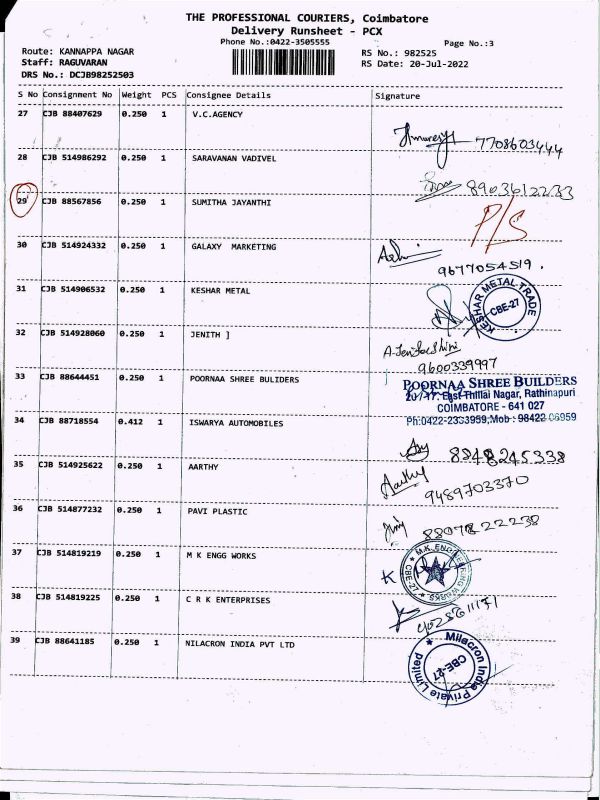 THE PROFESSIONAL COURIERS, Coimbatore
Delivery Runsheet - PCX
Phone No.:0422-3505555
Page No.:3
Route: KANNAPPA NAGAR
RS No.: 982525
Staff: RAGUVARAN
RS Date: 20-Jul-2022
DRS No.: DCJB98252503
S No Consignment No Weight PCS Consignee Details Signature
27 CJB 88407629 0.250 1 V.C.AGENCY
7708603444
28 CJB 514986292 0.250 1 SARAVANAN VADIVEL
8903612233
29 CJB 88567856 0.250 1 SUMITHA JAYANTHI
P/S
30 CJB 514924332 0.250 1 GALAXY MARKETING
9677054519.
31 CJB 514906532 0.250 1 KESHAR METAL
KESHAR METAL TRADE
CBE-27
32 CJB 514928060 0.250 1 JENITH ]
9600339997
33 CJB 88644451 0.250 1 POORNAA SHREE BULIDERS
POORNAA SHREE BUILDERS
20/17, East Thillai Nagar, Rathinapuri
COIMBATORE - 641 027
Ph:0422-2333959, Mob: 98422 06959
34 CJB 88718554 0.412 1 ISWARYA AUTOMOBILES
8848245338
35 CJB 514925622 0.250 1 AARTHY
Aarthy
9489703370
36 CJB 514877232 0.250 1 PAVI PLASTIC
37 CJB 514819219 0.250 1 M K ENGG WORKS
M.K. ENGINEERING WORKS
CBE-27
38 CJB 514819225 0.250 1 C R K ENTERPRISES
39 CJB 88641185 0.250 1 NILACRON INDIA PVT LTD
Milacron India Private Limited
CBE-27